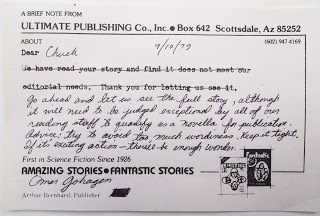 A BRIEF NOTE FROM
ULTIMATE PUBLISHING Co., Inc. • Box 642 Scottsdale, Az 85252
ABOUT
(602) 947 4169
Dear Chuck
9/10/79
We have read your story and find it does not meet our
editorial needs. Thank you for letting us see it.
Go ahead and let us see the full story, although
it will need to be judged exceptional by all of our
reading staff to qualify as a novella for publication.
Advice: try to avoid too much wordiness. Keep it tight.
If its exciting action - there'll be enough wonder.
First in Science Fiction Since 1926
AMAZING STORIES • FANTASTIC STORIES
Omar Gohagen
Arthur Bernhard, Publisher